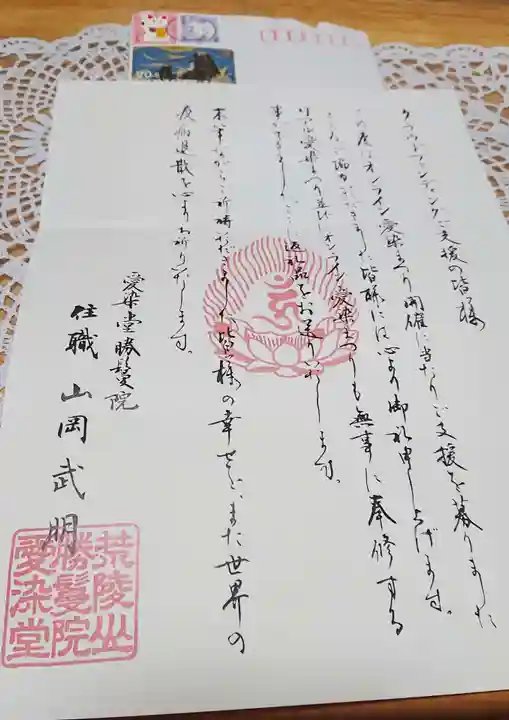 クラウドファンディングご支援の皆様
この度はオンライン愛染まつり開催に当たりご支援を募りました
ところご協力いただきました皆様には心より御礼申し上げます。
愛染まつり並びにオンライン愛染まつりも無事に奉修する
事ができました。ここに返礼品をお送りいたします。
ご祈祷いたしました皆様の幸せと、また世界の
疫病退散を心よりお祈りいたします。
愛染堂勝鬘院
住職 山岡武明
荒陵山
勝鬘院
愛染堂